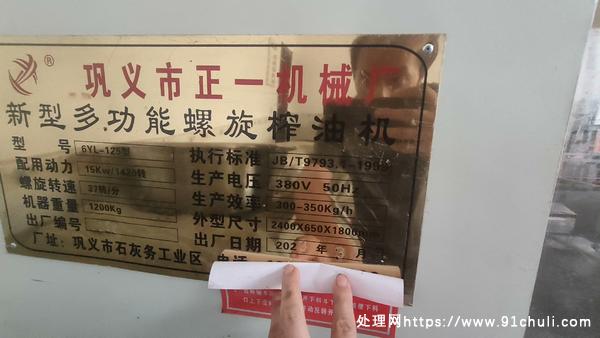 ®
巩义市正一机械厂
新型多功能螺旋榨油机
型 号 6YL-125型 执行标准 JB/T9793.1-1999
配用动力 15Kw/1420转 生产电压 380V 50Hz
螺旋转速 37转/分 生产效率 300-350Kg/h
机器重量 1200Kg 外型尺寸 2400X650X1800mm
出厂编号 出厂日期 202 年 月
厂址：巩义市石灰务工业区 电话
处理网https://www.91chuli.com/